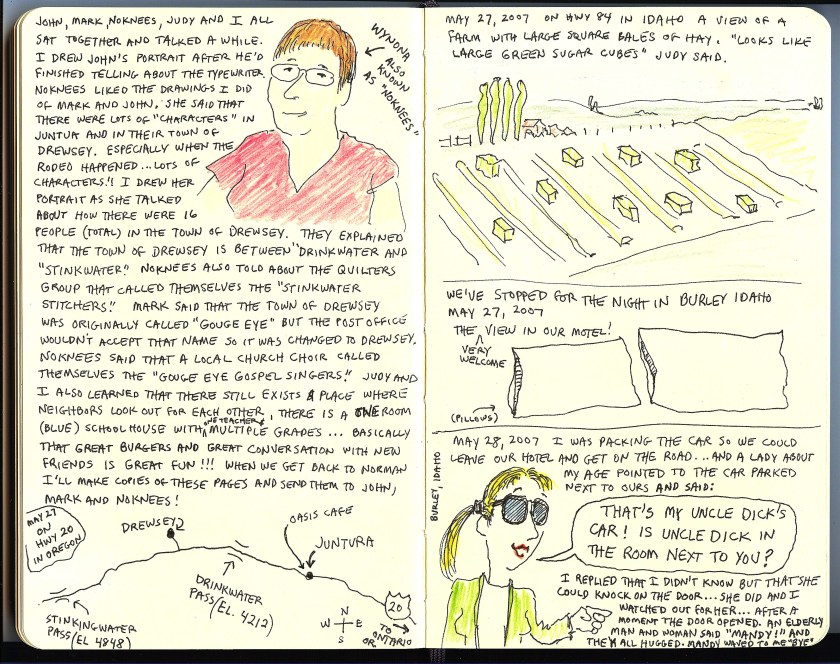 JOHN, MARK, NOKNEES, JUDY AND I ALL
SAT TOGETHER AND TALKED A WHILE.
I DREW JOHN'S PORTRAIT AFTER HE'D
FINISHED TELLING ABOUT THE TYPEWRITER.
NOKNEES LIKED THE DRAWINGS I DID
OF MARK AND JOHN, SHE SAID THAT
THERE WERE LOTS OF "CHARACTERS" IN
JUNTUA AND IN THEIR TOWN OF
DREWSEY. ESPECIALLY WHEN THE
RODEO HAPPENED...LOTS OF
CHARACTERS!! I DREW HER
PORTRAIT AS SHE TALKED
ABOUT HOW THERE WERE 16
PEOPLE (TOTAL) IN THE TOWN OF DREWSEY. THEY EXPLAINED
THAT THE TOWN OF DREWSEY IS BETWEEN "DRINKWATER AND
"STINKWATER". NOKNEES ALSO TOLD ABOUT THE QUILTERS
GROUP THAT CALLED THEMSELVES THE "STINKWATER
STITCHERS." MARK SAID THAT THE TOWN OF DREWSEY
WAS ORIGINALLY CALLED "GOUGE EYE" BUT THE POST OFFICE
WOULDN'T ACCEPT THAT NAME SO IT WAS CHANGED TO DREWSEY.
NOKNEES SAID THAT A LOCAL CHURCH CHOIR CALLED
THEMSELVES THE "GOUGE EYE GOSPEL SINGERS." JUDY AND
I ALSO LEARNED THAT THERE STILL EXISTS A PLACE WHERE
NEIGHBORS LOOK OUT FOR EACH OTHER, THERE IS A ONE ROOM
(BLUE) SCHOOL HOUSE WITH ONE TEACHER & MULTIPLE GRADES... BASICALLY
THAT GREAT BURGERS AND GREAT CONVERSATION WITH NEW
FRIENDS IS GREAT FUN!!! WHEN WE GET BACK TO NORMAN
I'LL MAKE COPIES OF THESE PAGES AND SEND THEM TO JOHN,
MARK AND NOKNEES!
WYNONA
ALSO
KNOWN
AS "NOKNEES"
MAY 27
ON
HWY 20
IN OREGON
DREWSEY
OASIS CAFE
JUNTURA
DRINKWATER
PASS (EL. 4212)
STINKINGWATER
PASS (EL 4848)
N
W E
S
20
TO
ONTARIO
OR.
MAY 27, 2007 ON HWY 84 IN IDAHO A VIEW OF A
FARM WITH LARGE SQUARE BALES OF HAY. "LOOKS LIKE
LARGE GREEN SUGAR CUBES" JUDY SAID.
WE'VE STOPPED FOR THE NIGHT IN BURLEY IDAHO
MAY 27, 2007
THE VIEW IN OUR MOTEL!
VERY
WELCOME
(PILLOWS)
BURLEY, IDAHO
MAY 28, 2007 I WAS PACKING THE CAR SO WE COULD
LEAVE OUR HOTEL AND GET ON THE ROAD...AND A LADY ABOUT
MY AGE POINTED TO THE CAR PARKED
NEXT TO OURS AND SAID:
THAT'S MY UNCLE DICK'S
CAR! IS UNCLE DICK IN
THE ROOM NEXT TO YOU?
I REPLIED THAT I DIDN'T KNOW BUT THAT SHE
COULD KNOCK ON THE DOOR...SHE DID AND I
WATCHED OUT FOR HER... AFTER A
MOMENT THE DOOR OPENED. AN ELDERLY
MAN AND WOMAN SAID "MANDY!" AND
THEY ALL HUGGED. MANDY WAVED TO ME "BYE"